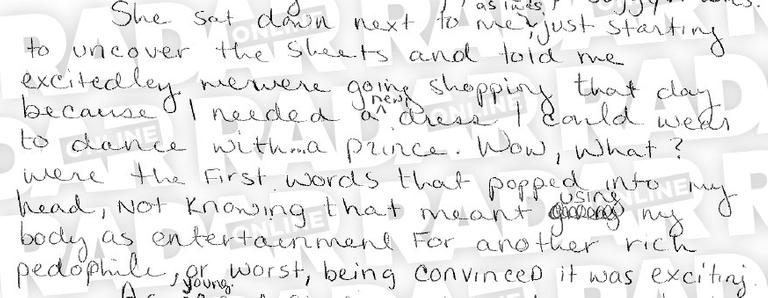 as I was
She sat down next to me, just starting
to uncover the sheets and told me
excitedley we were going shopping that day
because I needed a new dress I could wear
to dance with a prince. Wow, what?
were the first words that popped into my
head, not knowing that meant using my
body as entertainment for another rich
pedophile, or worst, being convinced it was exciting.
young